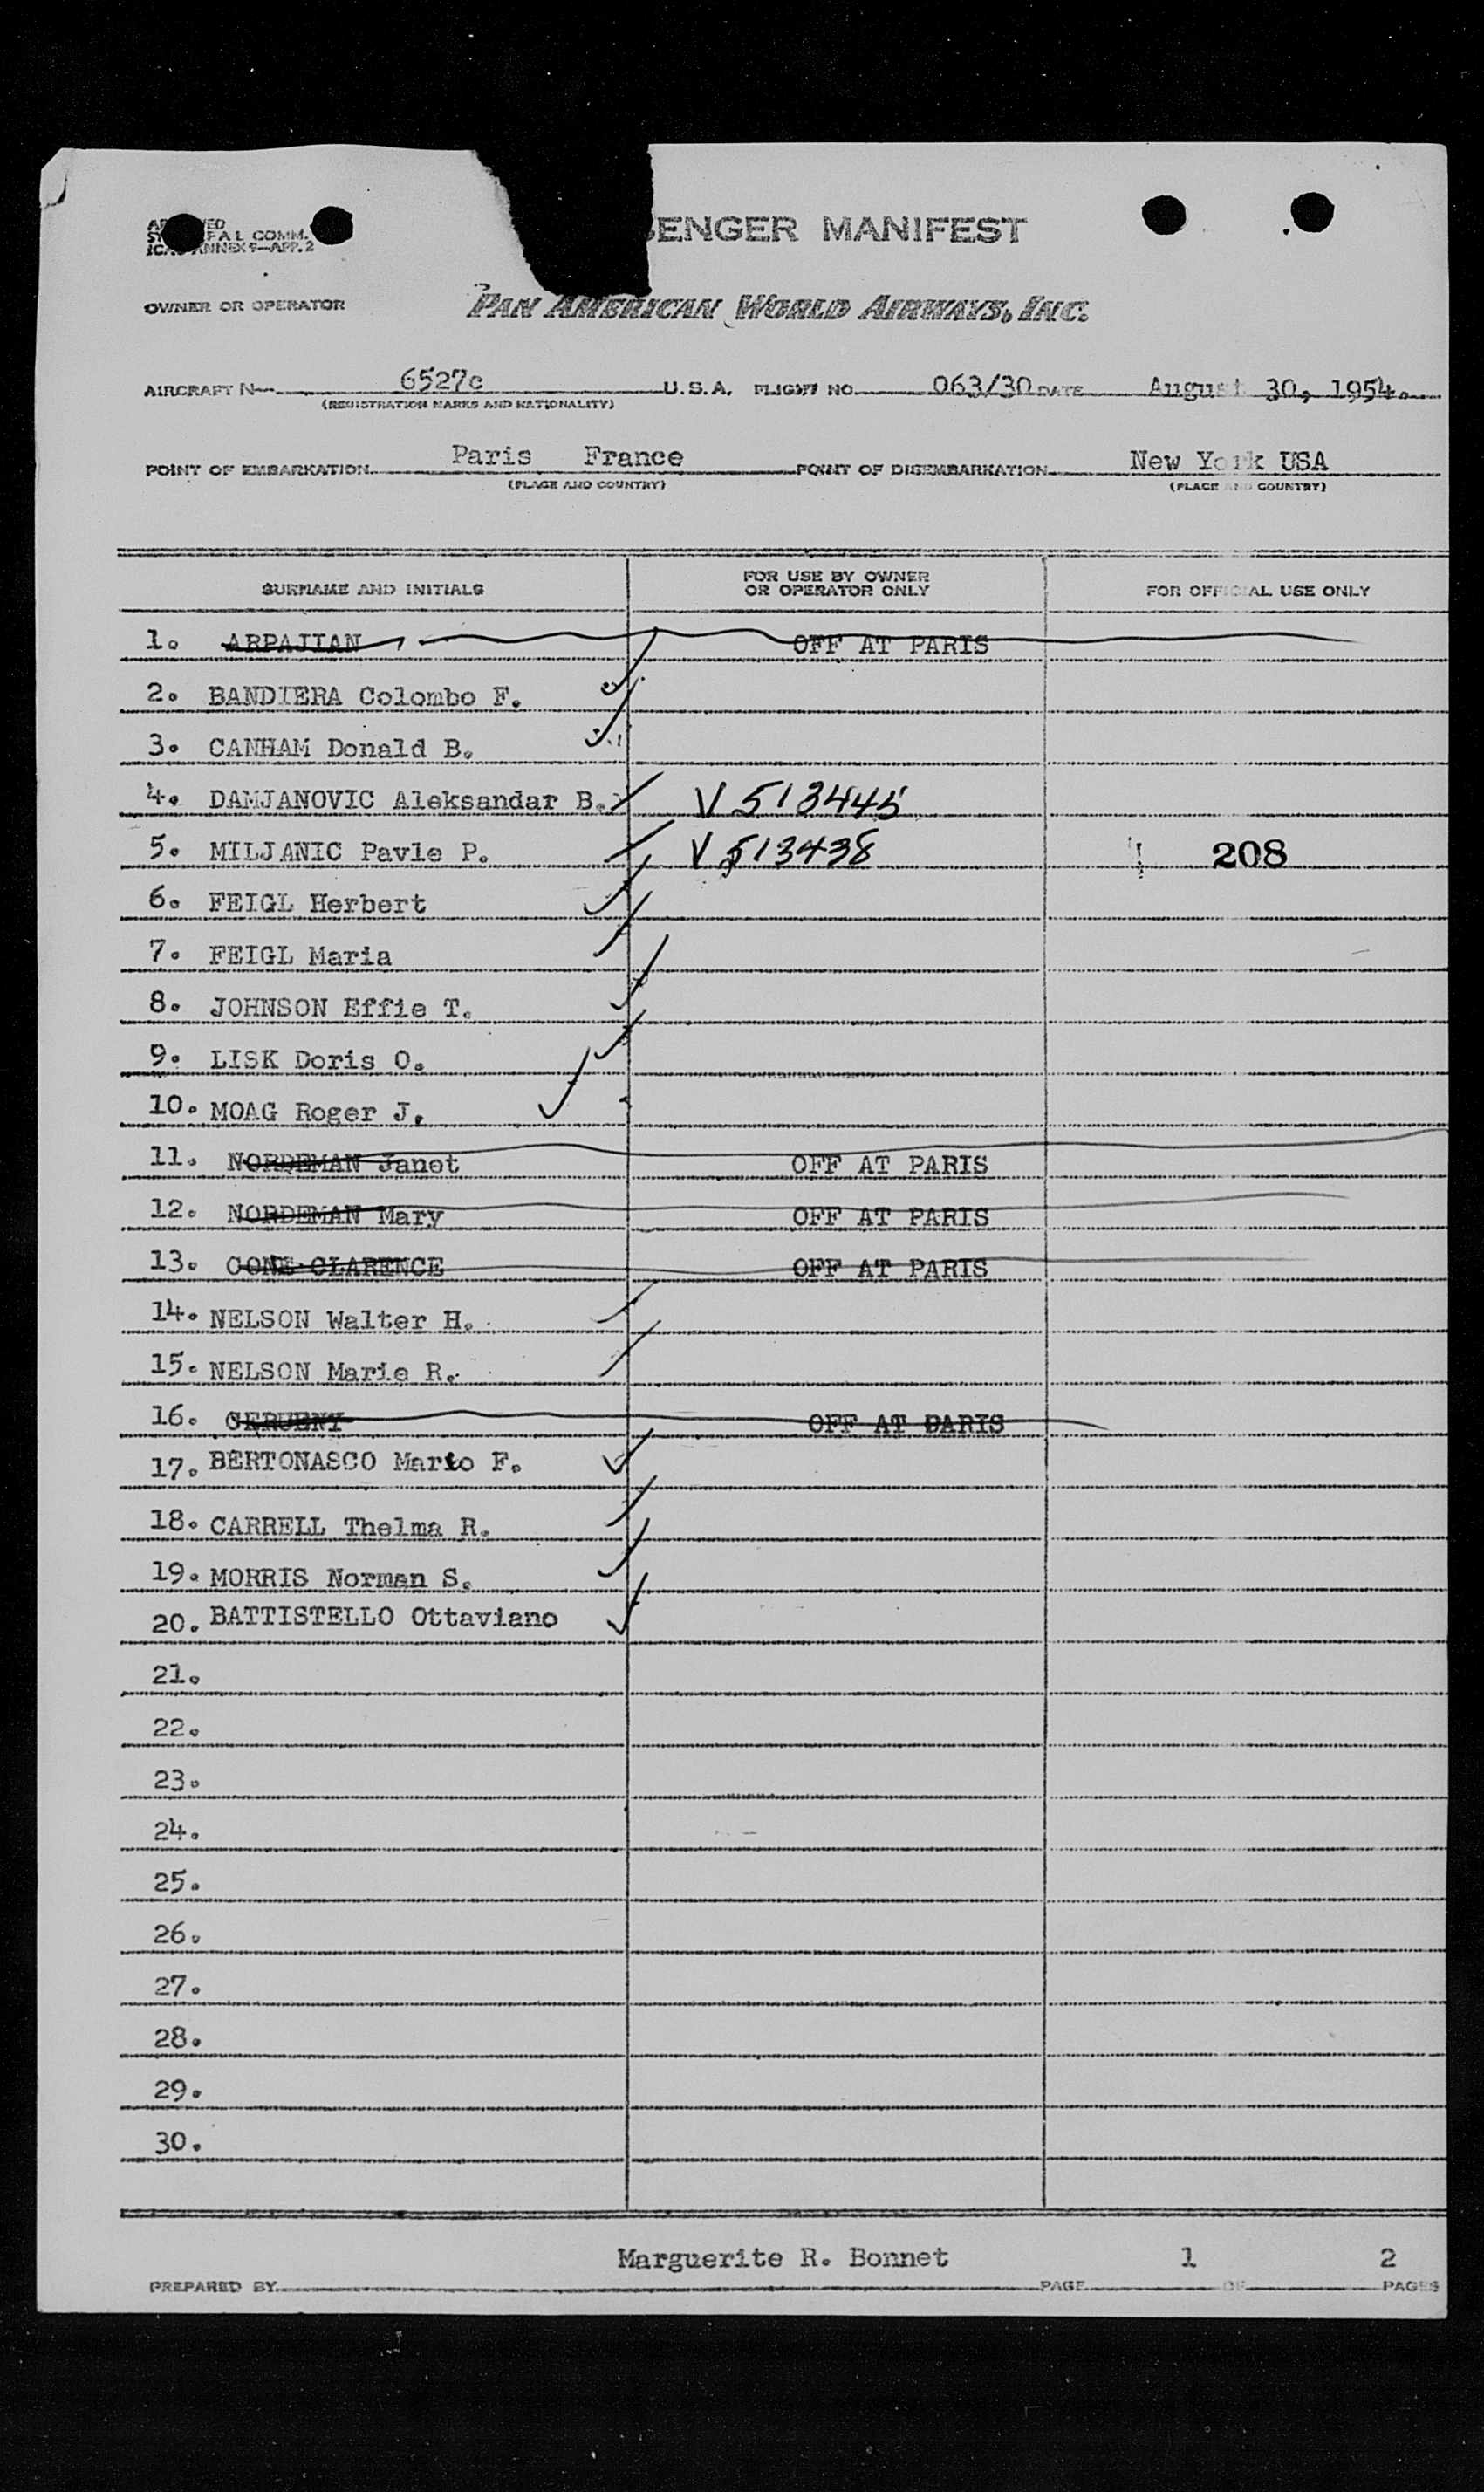 ENGER MANIFEST
FAL COMM.
ANNEX 9—APP. 2
OWNER OR OPERATOR PAN AMERICAN WORLD AIRWAYS, INC.
AIRCRAFT N— 6527c U.S.A. FLIGHT NO. 063/30 DATE August 30, 1954.
(REGISTRATION MARKS AND NATIONALITY)
POINT OF EMBARKATION Paris France POINT OF DISEMBARKATION New York USA
(PLACE AND COUNTRY) (PLACE AND COUNTRY)
SURNAME AND INITIALS FOR USE BY OWNER OR OPERATOR ONLY FOR OFFICIAL USE ONLY
1. ARPAJIAN OFF AT PARIS
2. BANDIERA Colombo F.
3. CANHAM Donald B.
4. DAMJANOVIC Aleksandar B. V 513445
5. MILJANIC Pavle P. V 513438 208
6. FEIGL Herbert
7. FEIGL Maria
8. JOHNSON Effie T.
9. LISK Doris O.
10. MOAG Roger J.
11. NORDEMAN Janet OFF AT PARIS
12. NORDEMAN Mary OFF AT PARIS
13. CONE CLARENCE OFF AT PARIS
14. NELSON Walter H.
15. NELSON Marie R.
16. OFF AT PARIS
17. BERTONASCO Mario F.
18. CARRELL Thelma R.
19. MORRIS Norman S.
20. BATTISTELLO Ottaviano
21.
22.
23.
24.
25.
26.
27.
28.
29.
30.
PREPARED BY Marguerite R. Bonnet PAGE 1 OF 2 PAGES